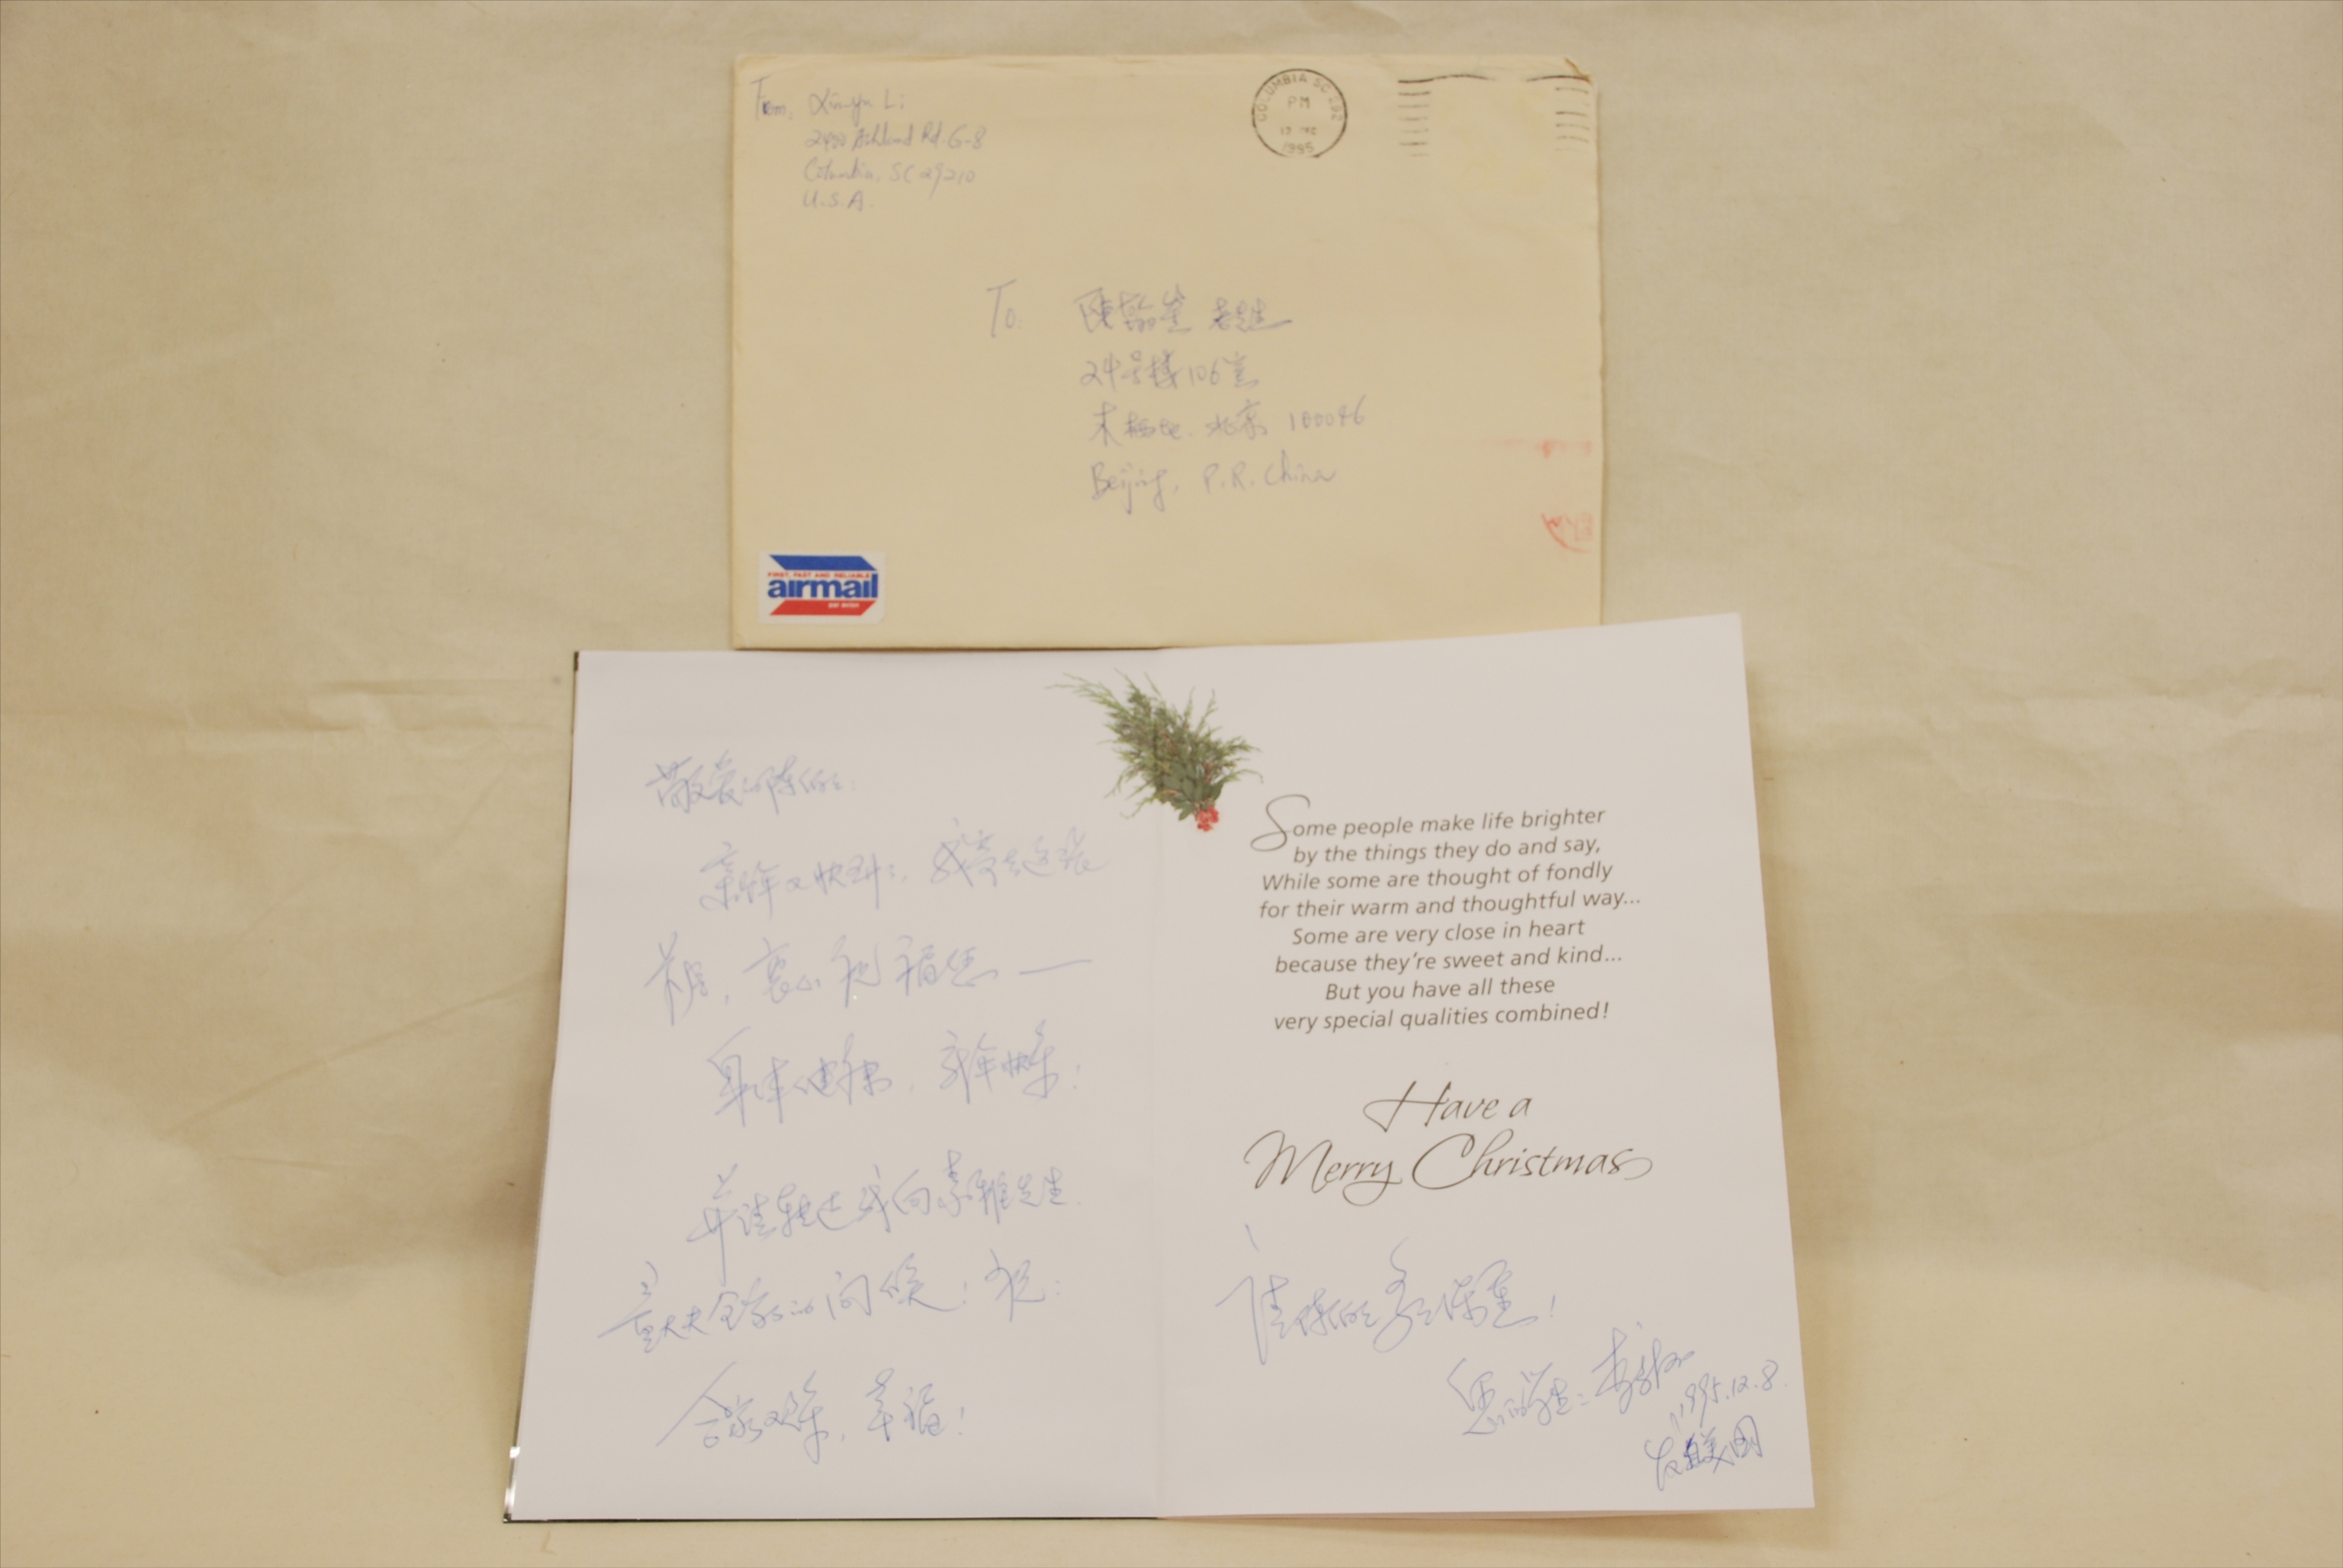 From: Xinyu Li
2400 Ashland Rd. G-8
Columbia, SC 29210
U.S.A.
COLUMBIA SC 292
PM
DEC
1995
To: 陳翰笙 老先生
24号楼106室
木樨地. 北京 100046
Beijing, P.R. China
FIRST, FAST AND RELIABLE
airmail
敬爱的陈伯伯:
新年又快到了, 我寄去这张
贺卡, 衷心祝福您——
身体健康, 新年快乐!
并请转达我向素雅先生、
童大夫全家的问候! 祝:
合家欢乐, 幸福!
Some people make life brighter
by the things they do and say,
While some are thought of fondly
for their warm and thoughtful way...
Some are very close in heart
because they're sweet and kind...
But you have all these
very special qualities combined!
Have a
Merry Christmas
请陈伯伯多多保重!
您的学生: 李新玉
1995.12.8.
发自美国